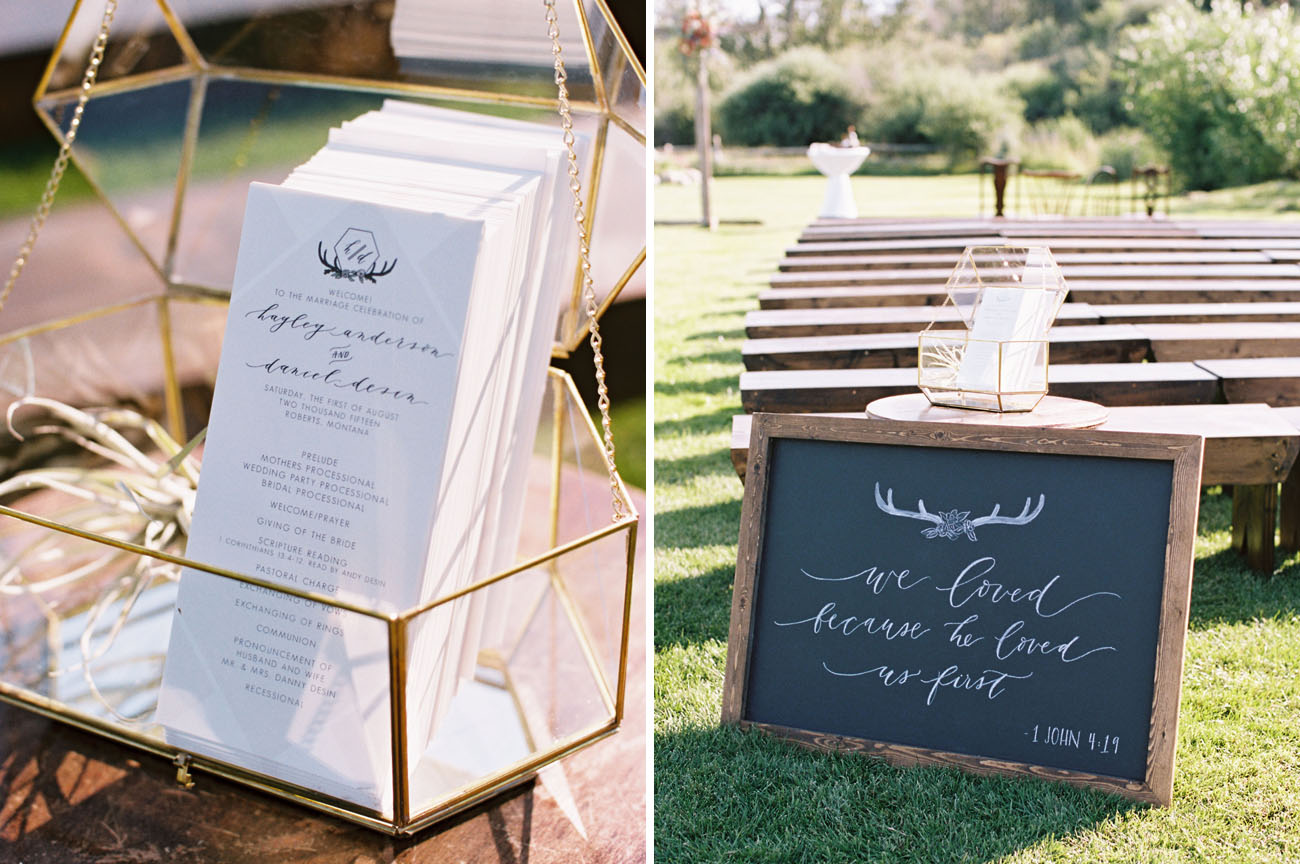 h/d
WELCOME!
TO THE MARRIAGE CELEBRATION OF
hayley anderson
AND
daniel desin
SATURDAY, THE FIRST OF AUGUST
TWO THOUSAND FIFTEEN
ROBERTS, MONTANA
PRELUDE
MOTHERS PROCESSIONAL
WEDDING PARTY PROCESSIONAL
BRIDAL PROCESSIONAL
WELCOME/PRAYER
GIVING OF THE BRIDE
SCRIPTURE READING
1 CORINTHIANS 13:4-12, READ BY ANDY DESIN
PASTORAL CHARGE
EXCHANGING OF VOW
EXCHANGING OF RINGS
COMMUNION
PRONOUNCEMENT OF
HUSBAND AND WIFE
MR. & MRS. DANNY DESIN
RECESSIONAL
we loved
because he loved
us first
-1 JOHN 4:19